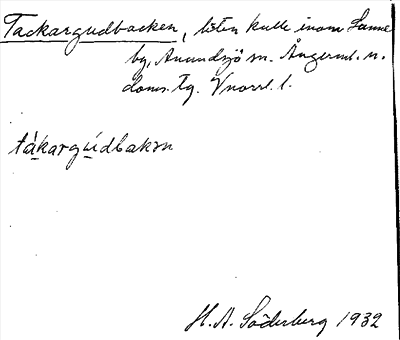 Tackargudbacken, liten kulle inom Sanne
by, Anundsjö sn. Ångerml. n.
doms. tg. Vnorrl. l.
tàkargúdbakɘn
H. A. Söderberg 1932